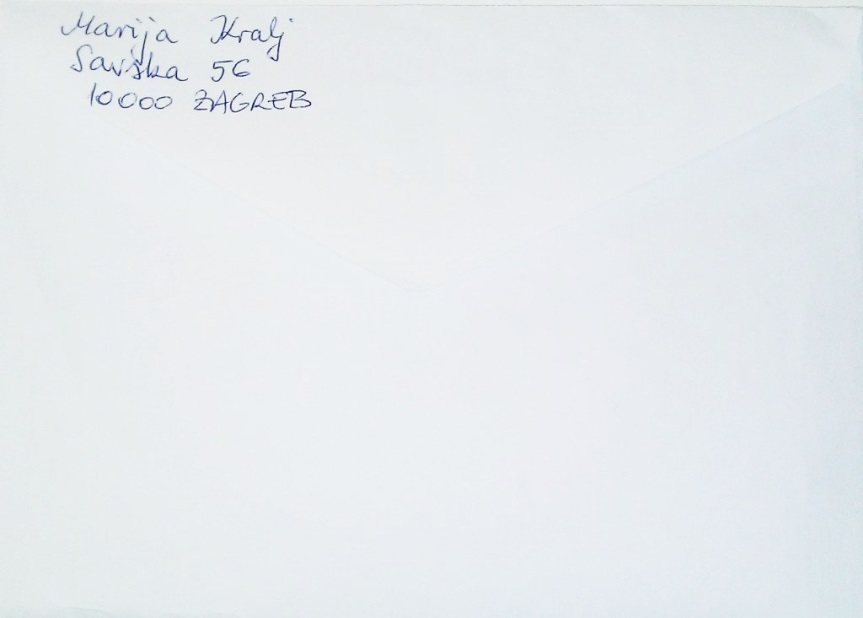 Marija Kralj
Savska 56
10000 ZAGREB